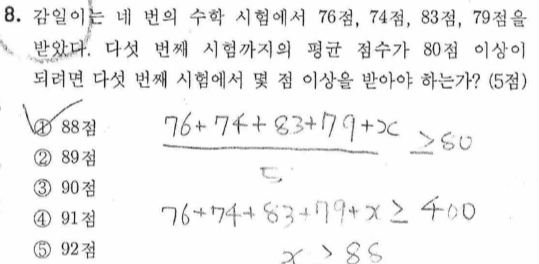 8. 감일이는 네 번의 수학 시험에서 76점, 74점, 83점, 79점을
받았다. 다섯 번째 시험까지의 평균 점수가 80점 이상이
되려면 다섯 번째 시험에서 몇 점 이상을 받아야 하는가? (5점)
① 88점
② 89점
③ 90점
④ 91점
⑤ 92점
76+74+83+79+x
≥80
5
76+74+83+79+x ≥ 400
x > 88